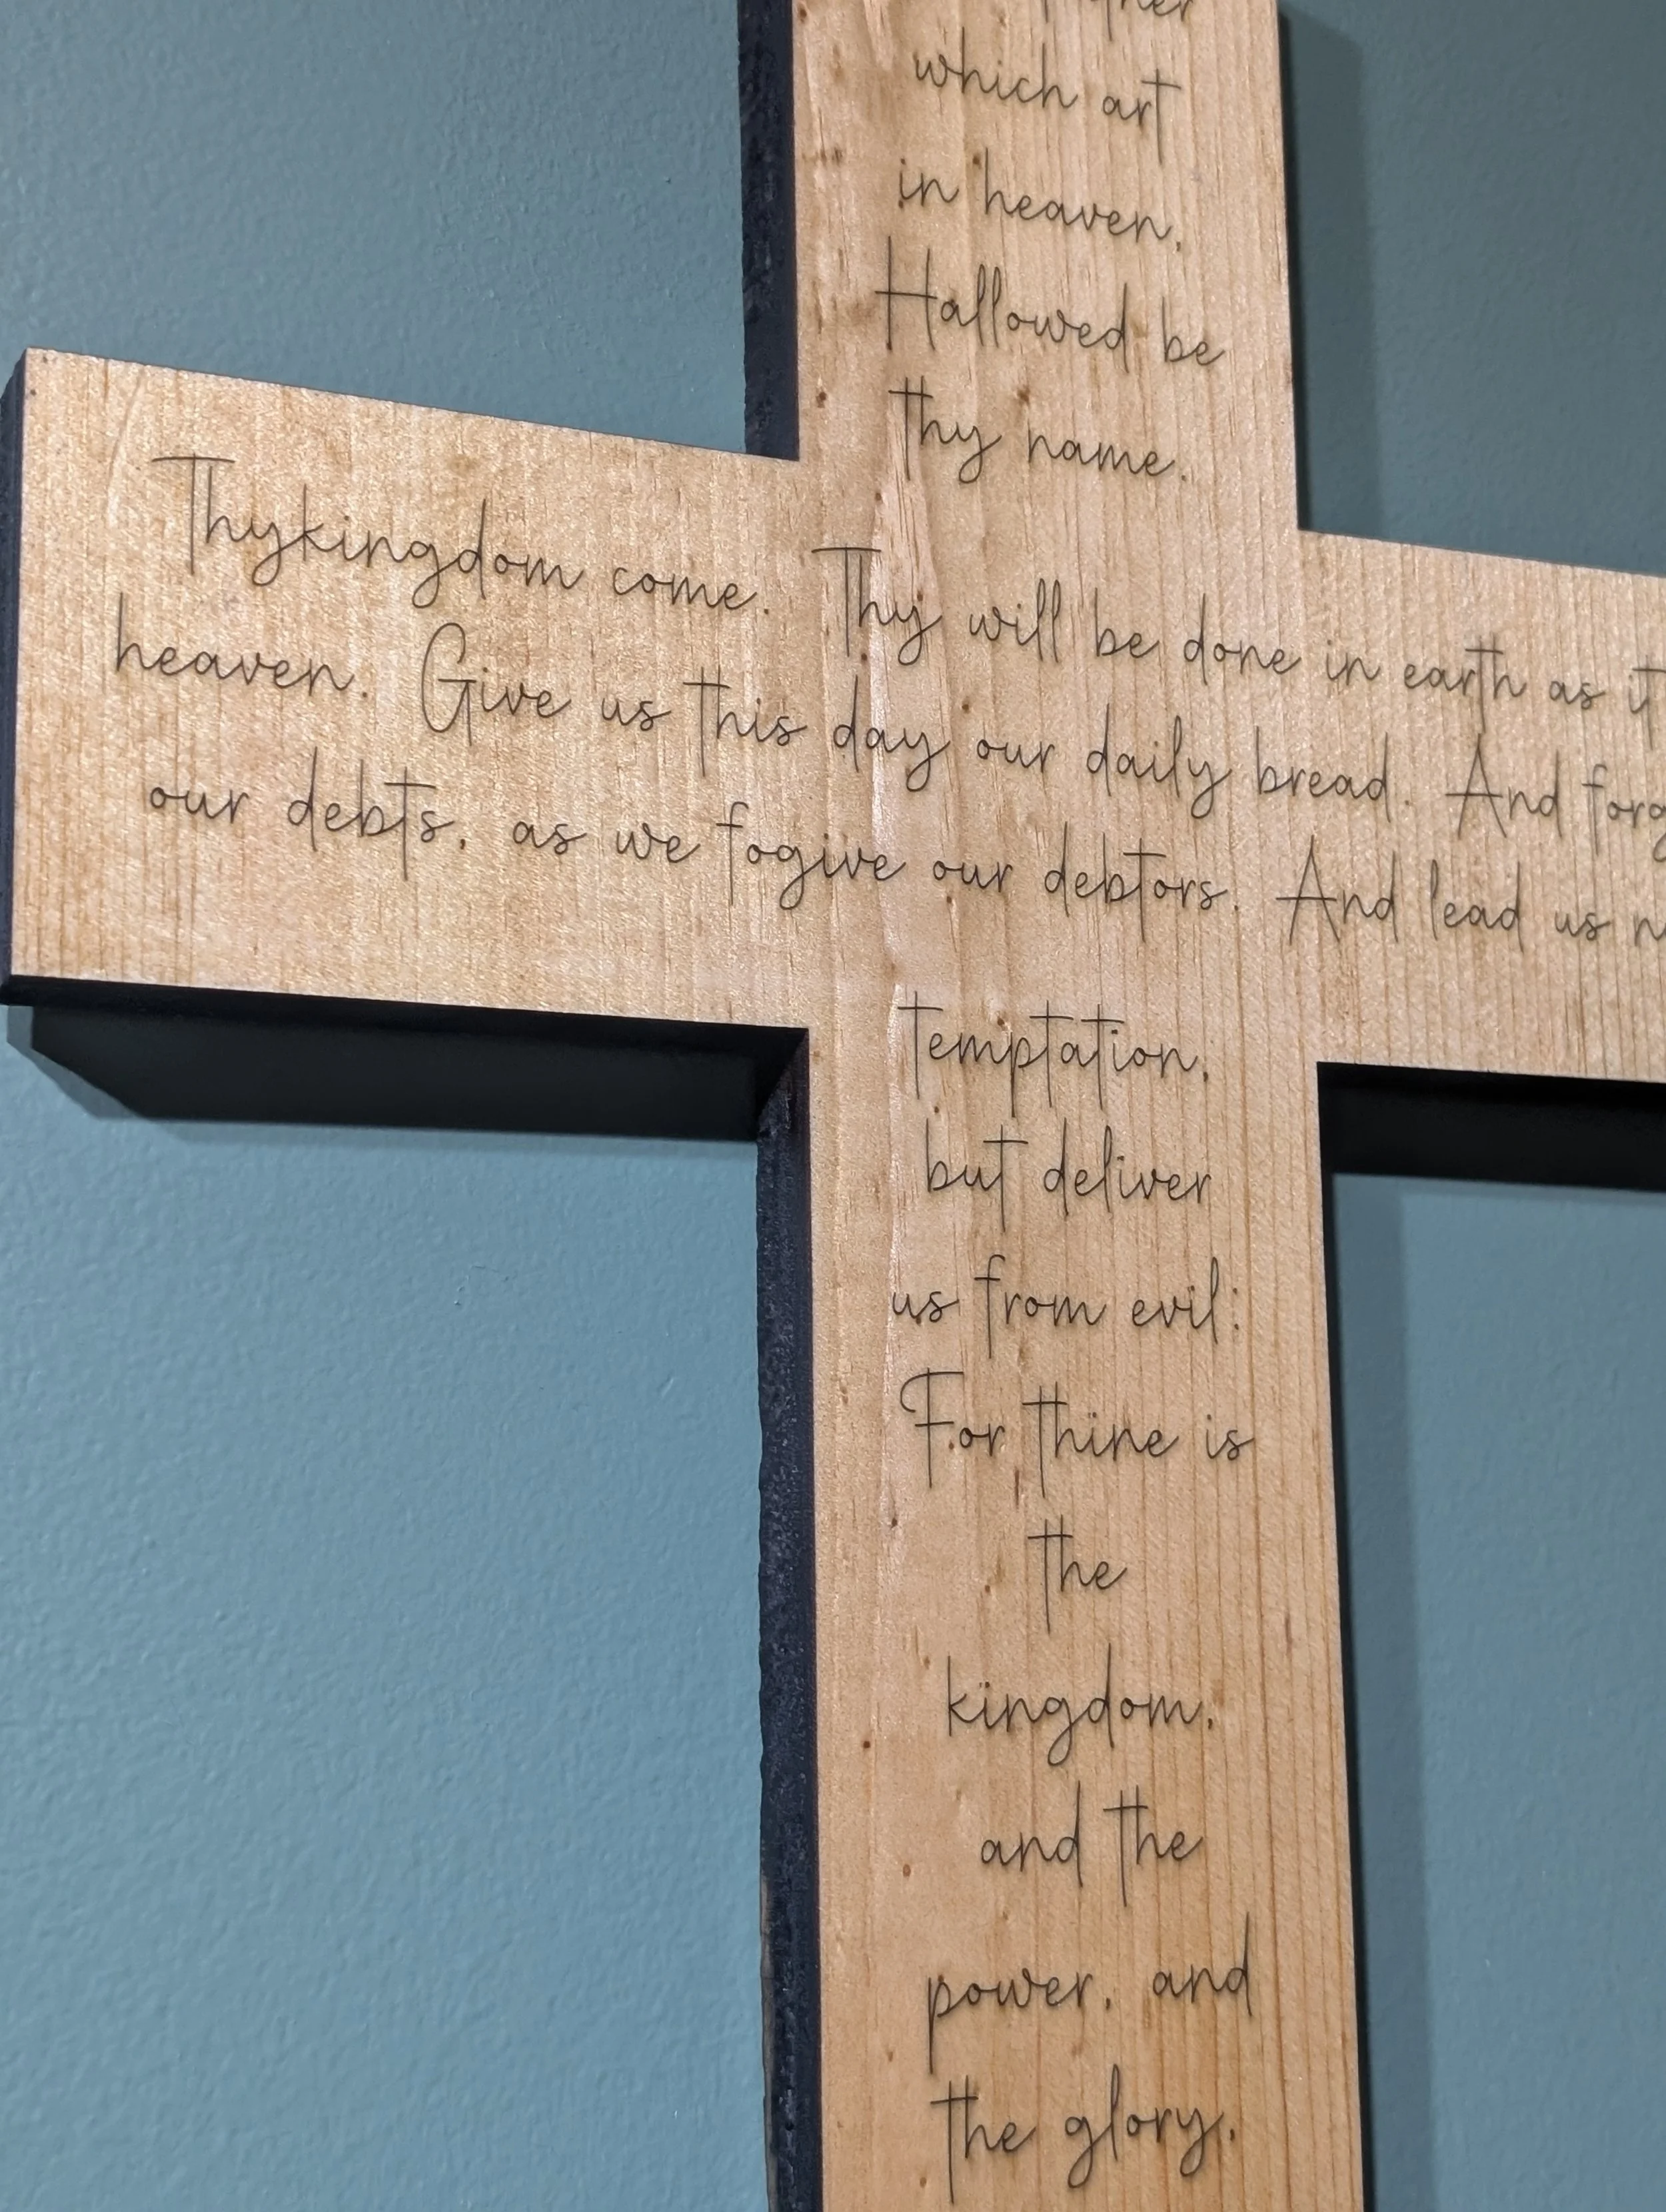 which art
in heaven,
Hallowed be
thy name.
Thykingdom come. Thy will be done in earth as it
heaven. Give us this day our daily bread. And
our debts, as we fogive our debtors. And lead us
temptation,
but deliver
us from evil:
For thine is
the
kingdom,
and the
power, and
the glory,